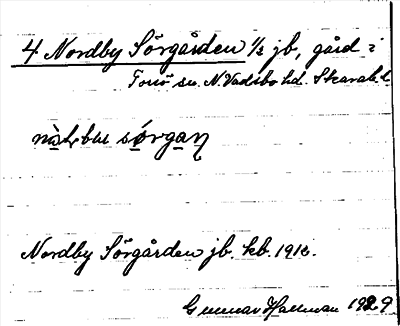 4 Nordby Sörgården 1/2 jb, gård i
Torsö sn. N. Vadsbo hd. Skarab. l.
sörgaɳ
Nordby Sörgården jb. kb. 1912.
Gunnar Hallman 1929